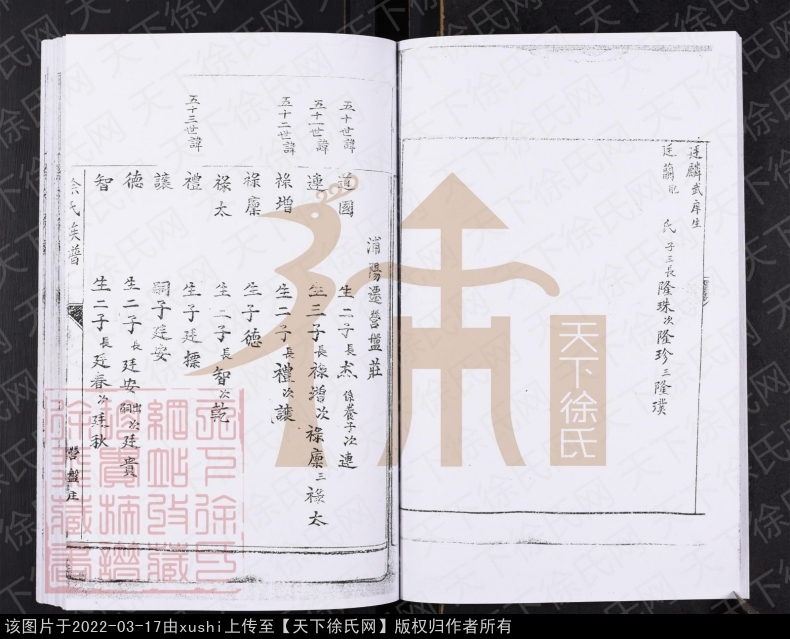 廷麟武庠生
廷蘭妣 氏 子三長隆珠次隆珍三隆璞
消陽遷營盤莊
五十世諱 道國 生二子長杰係養子次連
五十一世諱 連 生三子長祿增次祿廩三祿太
五十二世諱 祿增 生二子長禮次讓
祿廩 生子德
祿太 生二子長智次乾
五十三世諱 禮 生子廷標
讓 嗣子廷安
德 生二子長廷安出嗣次廷貴
智 生二子長廷春次廷秋
徐氏族譜 營盤庄
天下徐氏
该图片于2022-03-17由xushi上传至【天下徐氏网】版权归作者所有